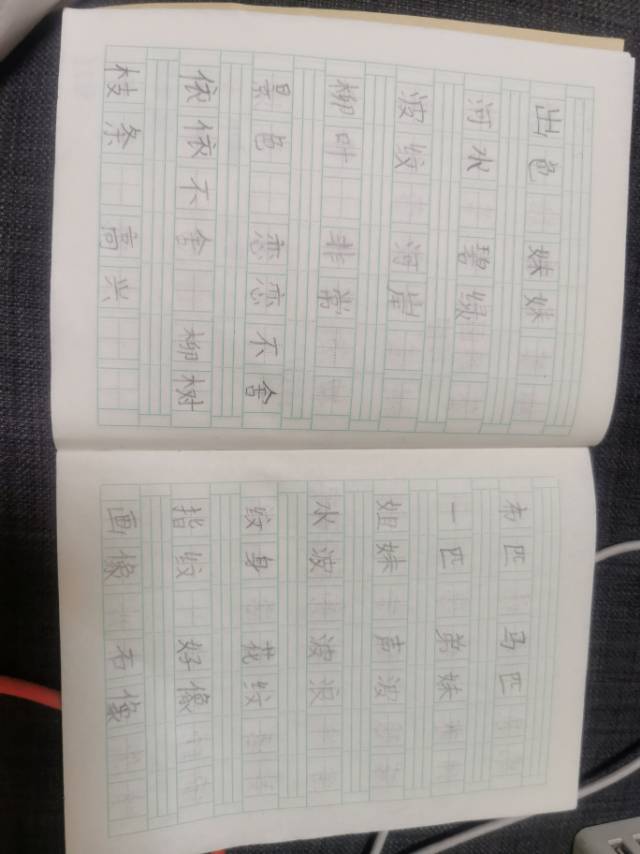 出色 妹妹
河水 碧绿
波纹 海岸
柳叶 非常
景色 恋恋不舍
依依不舍 柳树
枝条 高兴
布匹 马匹
一匹 弟妹
姐妹 声波
水波 波浪
纹身 花纹
指纹 好像
画像 石像